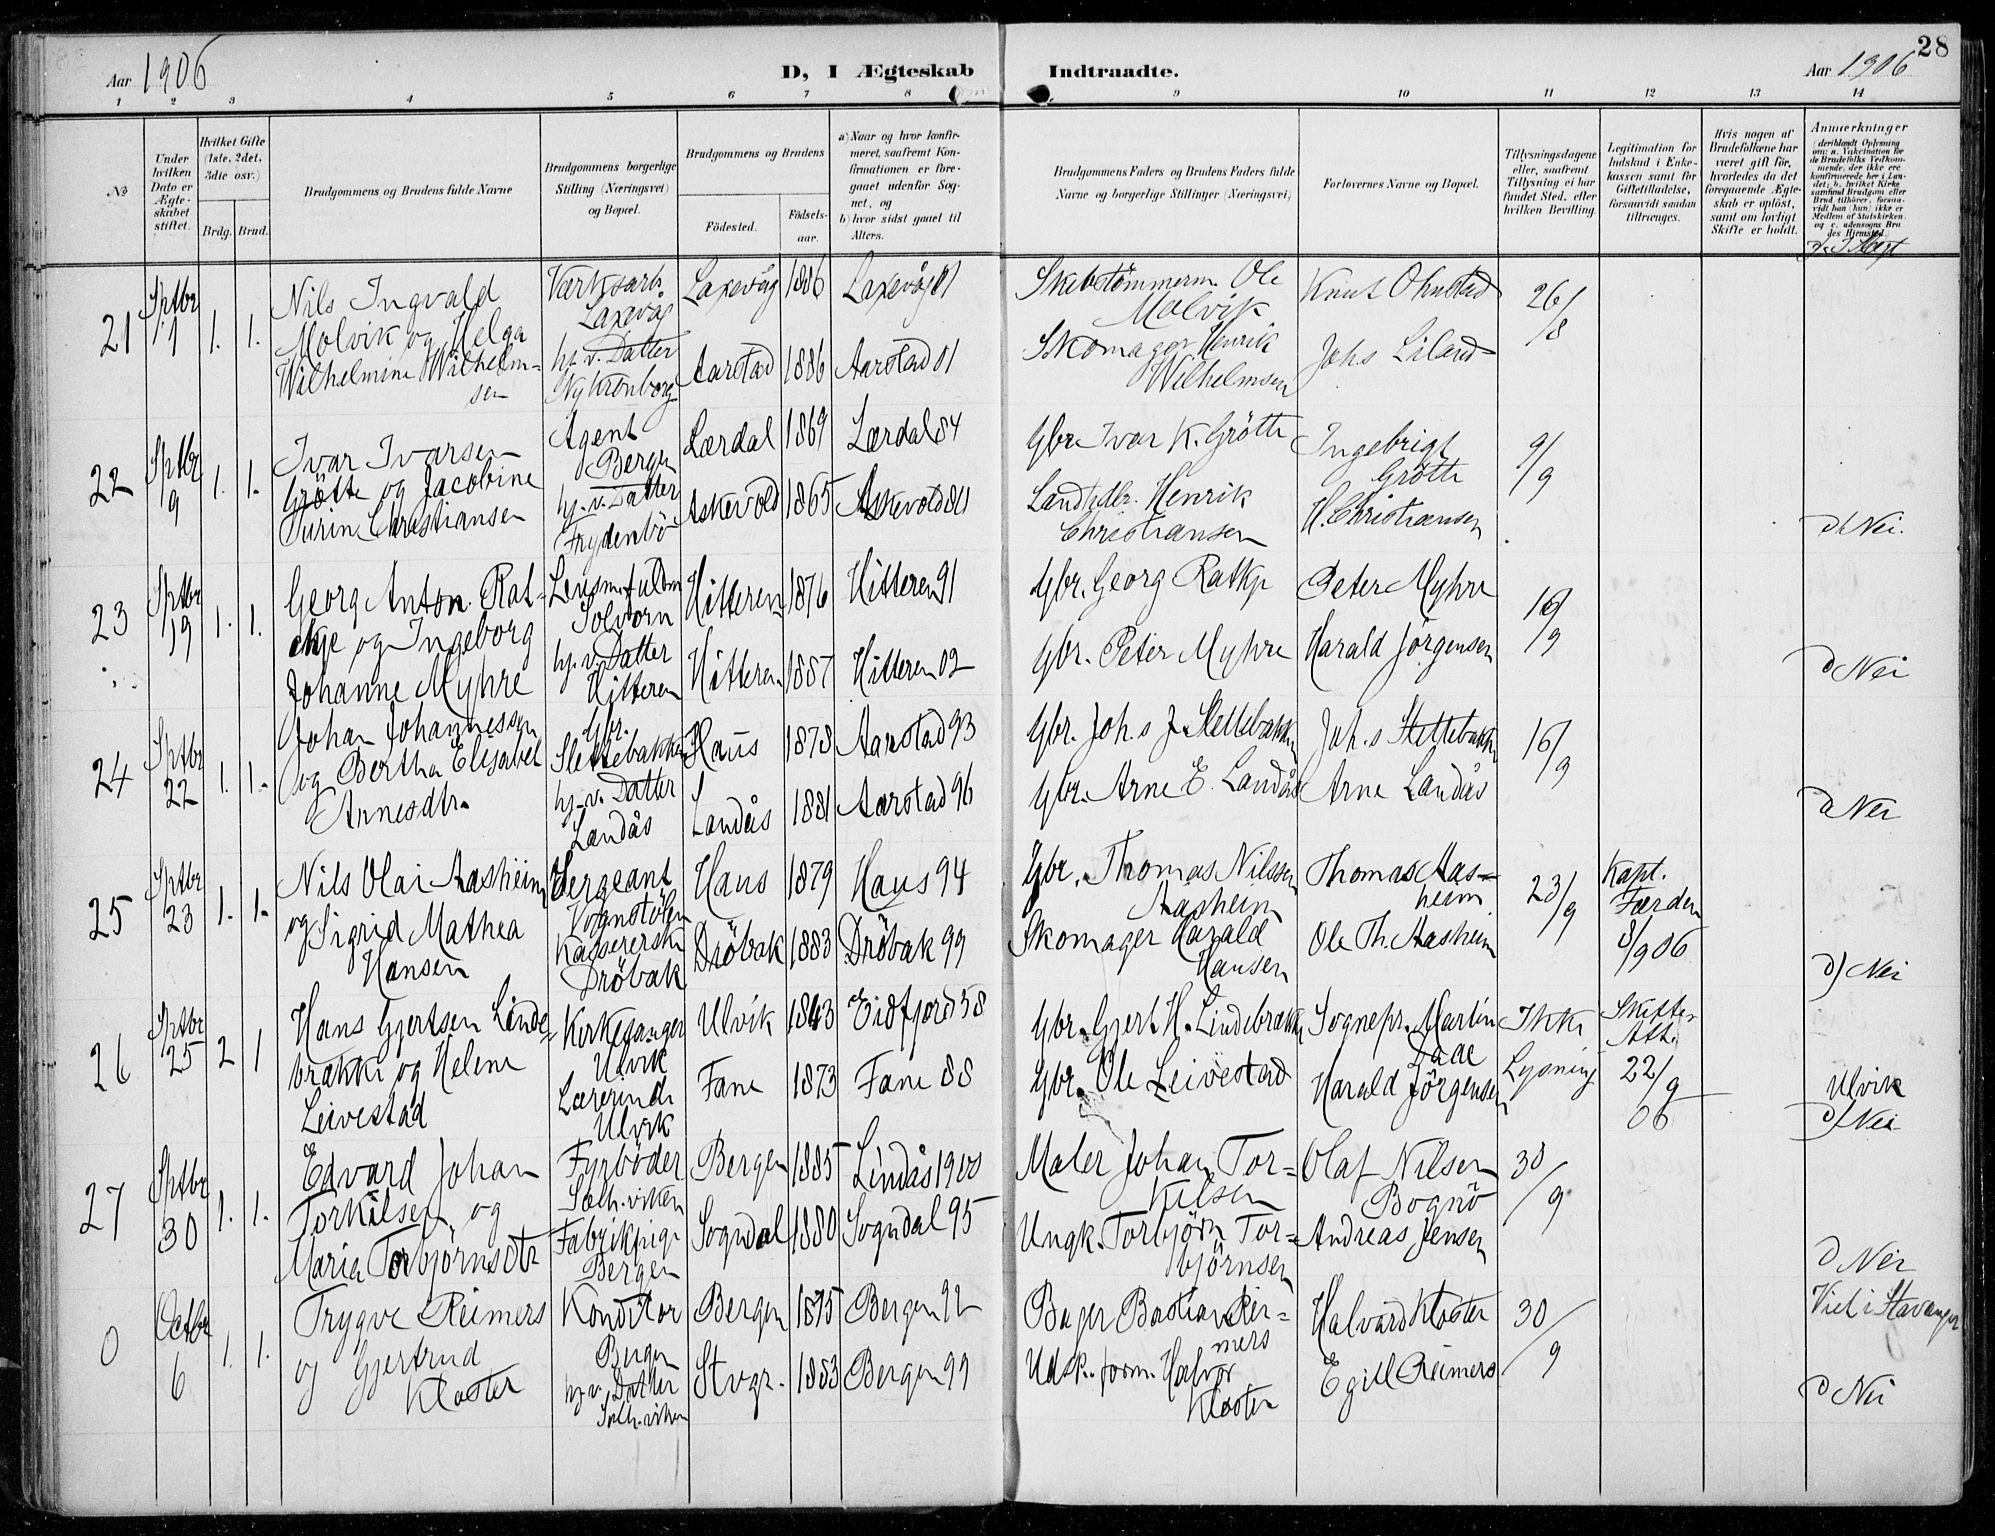 28
Aar 1906
D, I Ægteskab Indtraadte.
Aar 1906
1 2 3 4 5 6 7 8 9 10 11 12 13 14
No
Under hvilken Dato er Ægteskabet stiftet.
Hvilket Gifte (1ste, 2det, 3die osv.)
Brdg. Brud.
Brudgommens og Brudens fulde Navne
Brudgommens borgerlige Stilling (Næringsvei) og Bopæl.
Brudgommens og Brudens
Fødested.
Fødselsaar.
a) Naar og hvor konfirmeret, saafremt Konfirmationen er foregaaet udenfor Sognet, og
b) hvor sidst gaaet til Alters.
Brudgommens Faders og Brudens Faders fulde Navne og borgerlige Stillinger (Næringsvei)
Forlovernes Navne og Bopæl.
Tillysningsdagene eller, saafremt Tillysning ei har fundet Sted, efter hvilken Bevilling.
Legitimation for Indskud i Enkekassen samt for Giftetilladelse, forsaavidt saadan tiltrænges.
Hvis nogen af Brudefolkene har været gift før, hvorledes da det foregaaende Ægteskab er opløst, samt om lovligt Skifte er holdt.
Anmerkninger (deriblandt Oplysning om: a. Vakcination for de Brudefolks Vedkommende, der ikke ere konfirmerede her i Landet; b. hvilket Kirkesamfund Brudgom eller Brud tilhører, forsaavidt han (hun) ikke er Medlem af Statskirken, og c. udensogns Brudes Hjemsted.)
21 Sptbr 1 1. 1.
Nils Ingvald
Molvik og Helga
Wilhelmine Wilhelm-
sen
Værksarb.
Laxevåg
hj. v. Datter
Ny Kronborg
Laxevåg 1886 Laxevåg 01
Aarstad 1886 Aarstad 01
Skibstömmerm. Ole
Molvik
Skomager Henrik
Wilhelmsen
Knut Ohnstad
Johs Liland
26/8
22 Sptbr 9 1. 1.
Ivar Ivarsen
Grötte og Jacobine
Turine Christiansen
Agent
Bergen
hj. v. Datter
Frydenbö
Lærdal 1869 Lærdal 84
Askevold 1865 Askevold 80
Gbr. Ivar K. Grötte
Landhdlr. Henrik
Christiansen
Ingebrigt
Grötte
H. Christiansen
9/9
d) Nei.
23 Sptbr 19 1. 1.
Georg Anton Rat-
kje og Ingeborg
Johanne Myhre
Lensm.fuldm
Solvorn
hj. v. Datter
Hitteren
Hitteren 1876 Hitteren 91
Hitteren 1887 Hitteren 02
Gbr. Georg Ratkje
Gbr. Peter Myhre
Peter Myhre
Harald Jörgensen
16/9
d Nei
24 Sptbr 22 1. 1.
Johan Johannessen
og Bertha Elisabet
Arnesdtr.
Gbr.
Slettebakken
hj. v. Datter
Landås
Haus 1878 Aarstad 93
Landås 1881 Aarstad 96
Gbr. Joh.s J. Slettebakken
Gbr. Arne E. Landås
Joh.s Slettebakken
Arne Landås
16/9
d Nei
25 Sptbr 23 1. 1.
Nils Olai Aasheim
og Sigrid Mathea
Hansen
Sergeant
Vognstölen
Kassererske
Dröbak
Haus 1879 Haus 94
Dröbak 1883 Dröbak 99
Gbr. Thomas Nilssen
Aasheim
Skomager Harald
Hansen
Thomas Aas-
heim
Ole Th. Aasheim
23/9
Kapt.
Færden
8/9 06
d) Nei
26 Sptbr 25 2 1
Hans Gjertsen Linde-
brække og Helene
Leivestad
Kirkesanger
Ulvik
Lærerinde
Ulvik
Ulvik 1843 Eidfjord 58
Fane 1873 Fane 88
Gbr. Gjert H. Lindebrække
Gbr. Ole Leivestad
Sognepr. Martin
Daae
Harald Jörgensen
Ikke
Lysning
Skifte
Att.
22/9
06
Ulvik
d) Nei
27 Sptbr 30 1. 1.
Edvard Johan
Torkilsen og
Maria Torbjörnsdtr
Fyrböder
Solh.viken
Fabrikpige
Bergen
Bergen 1885 Lindås 1900
Sogndal 1880 Sogndal 95
Maler Johan Tor-
kilsen
Ungk. Torbjörn Tor-
björnsen
Olaf Nilsen
Bognö
Andreas Jensen
30/9
d Nei
0 Octbr 6 1. 1.
Trygve Reimers
og Gjertrud
Kloster
Konditor
Bergen
hj. v. Datter
Solh.viken
Bergen 1875 Bergen 92
Stvgr. 1883 Bergen 99
Bager Bastian Rei-
mers
Udsk.form. Halvor
Kloster
Halvard Kloster
Egill Reimers
30/9
Viet i Stavanger
d Nei